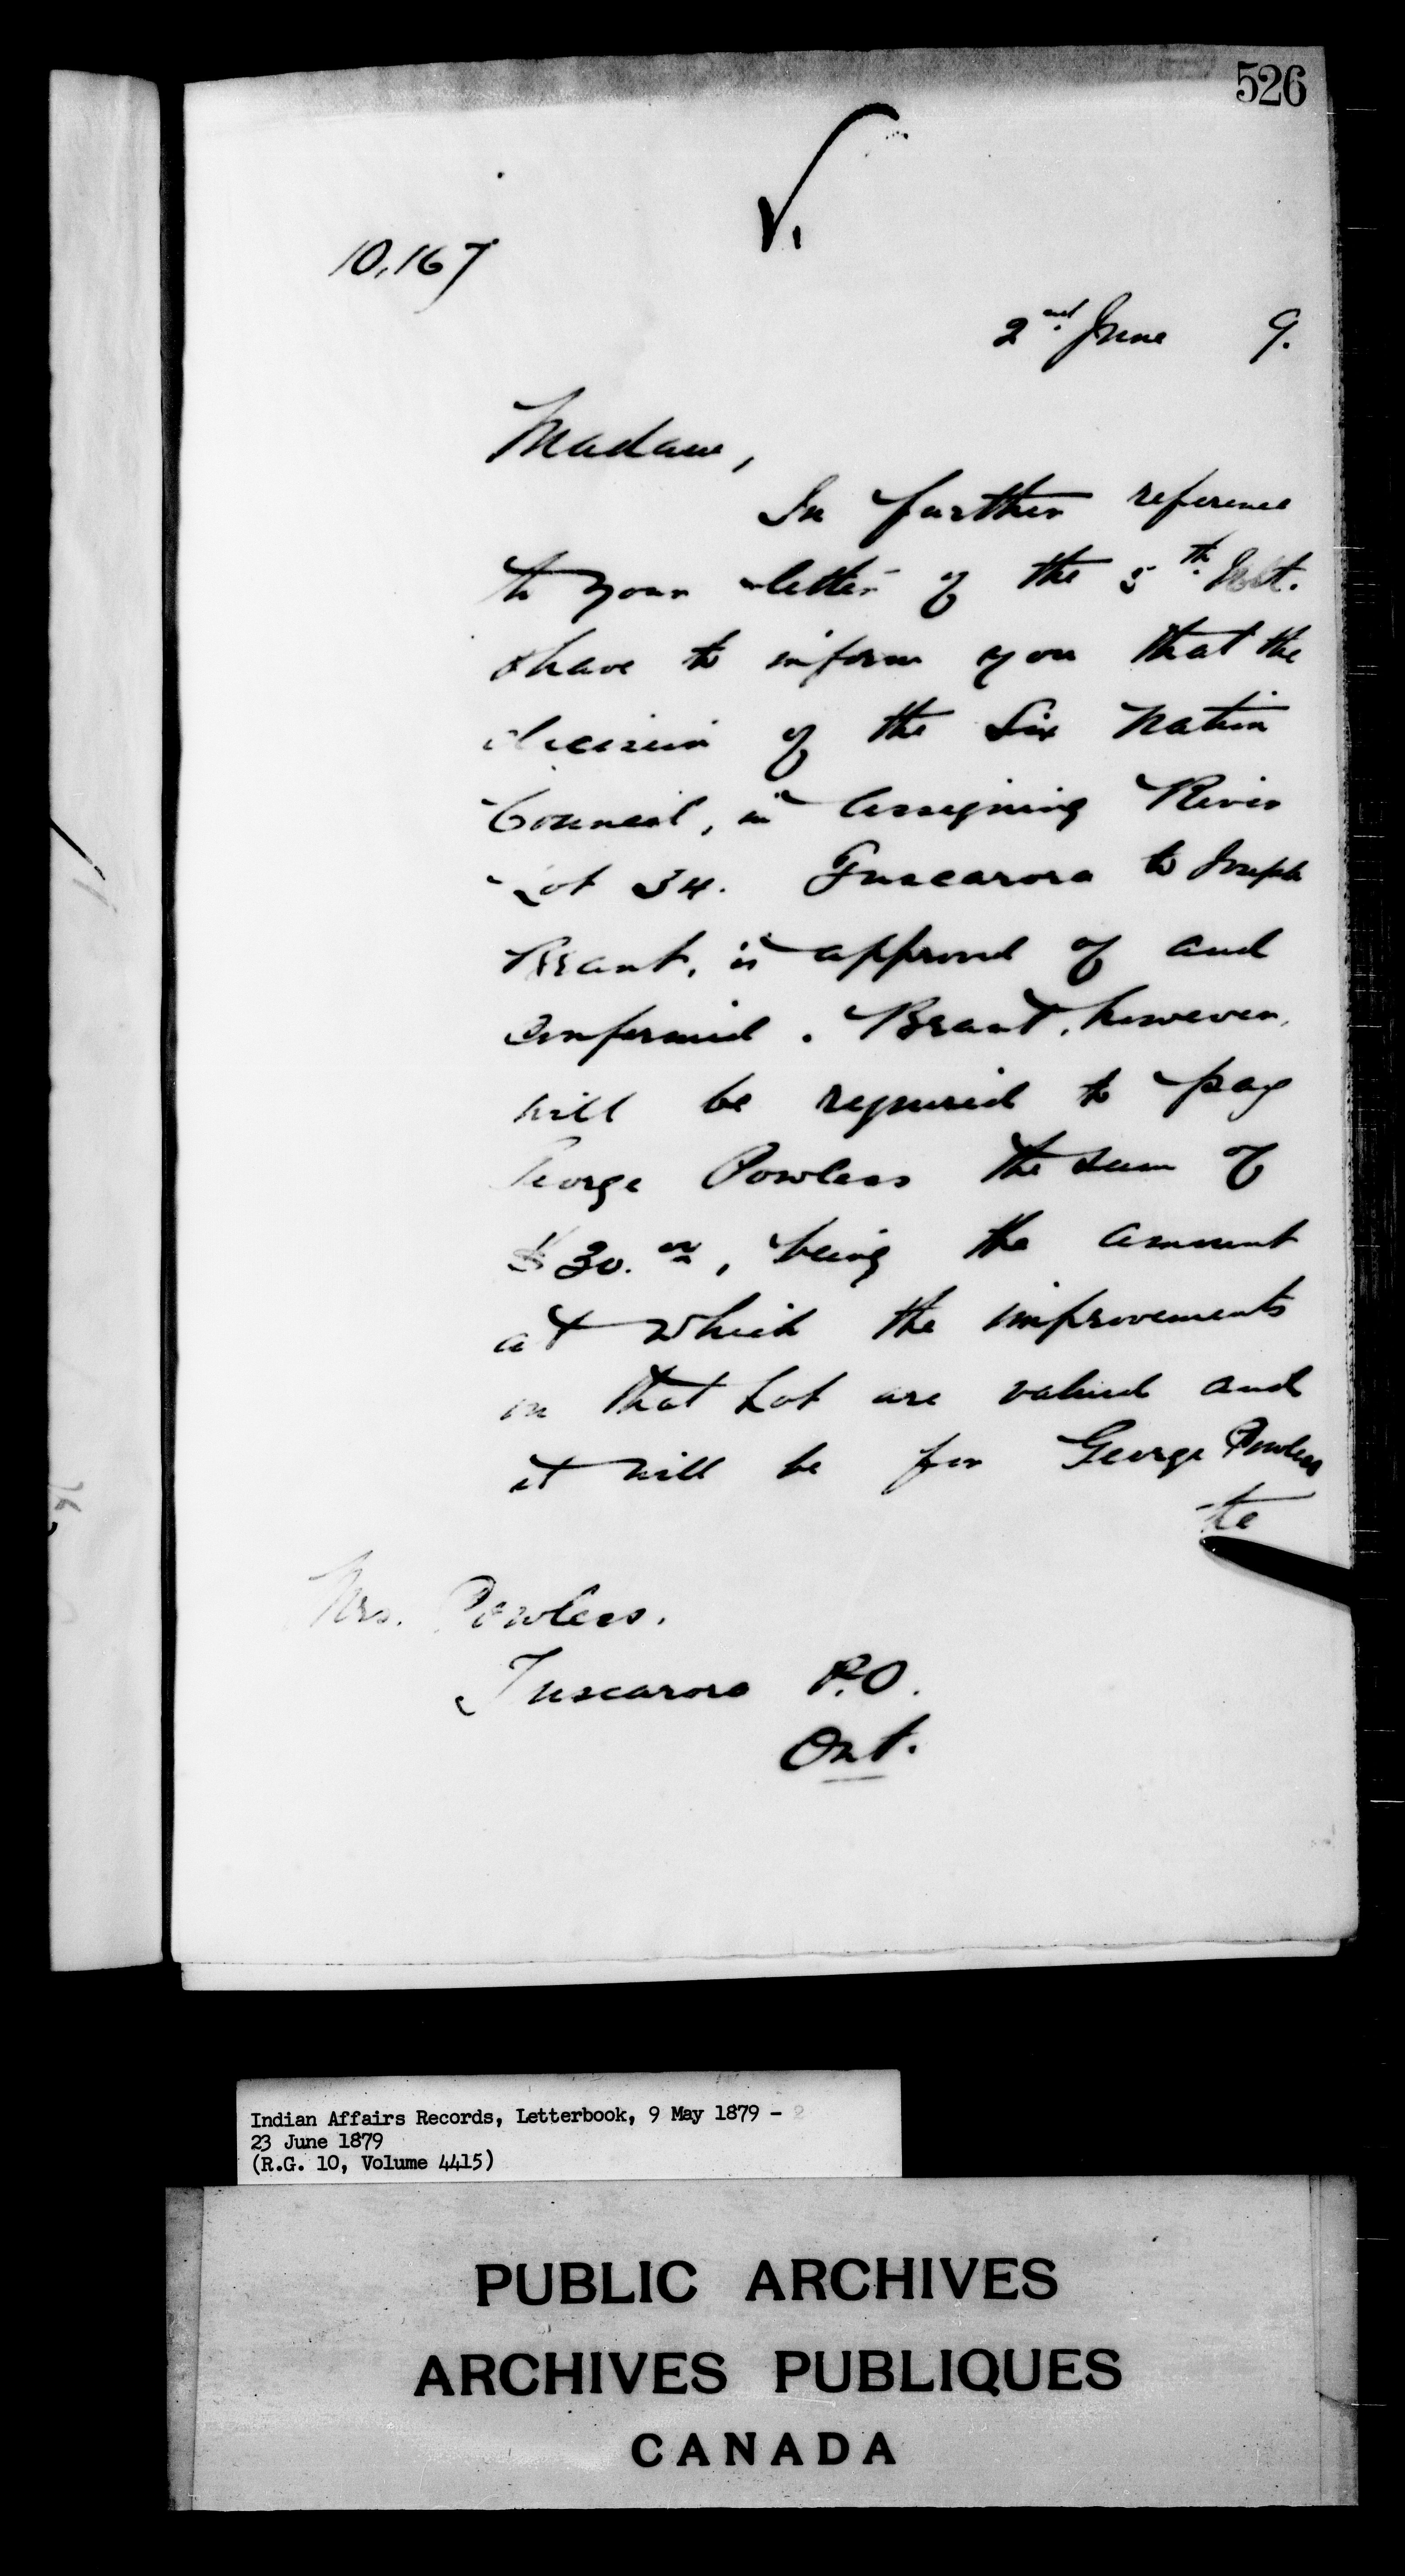 526
10,167
2nd June 9.
Madam,
In further reference
to your letter of the 5th
I have to inform you that the
decision of the Six Nation
Council, in assigning River
Lot 34. Tuscarora to Joseph
Brant, is approved of and
confirmed. Brant, however,
will be required to pay
George Powless the sum of
$30.00, being the amount
at which the improvements
on that Lot are valued and
it will be for George Powless
to
Mrs. Powless.
Tuscarora P.O.
Ont.
Indian Affairs Records, Letterbook, 9 May 1879 - 2
23 June 1879
(R.G. 10, Volume 4415)
PUBLIC ARCHIVES
ARCHIVES PUBLIQUES
CANADA